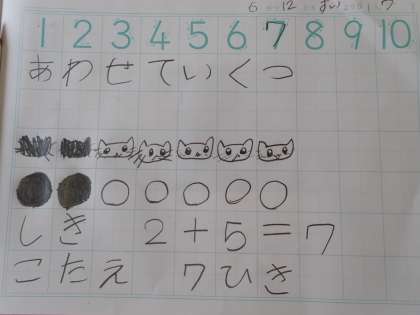 6 12 7
1 2 3 4 5 6 7 8 9 10
あわせていくつ
しき 2+5=7
こたえ 7ひき